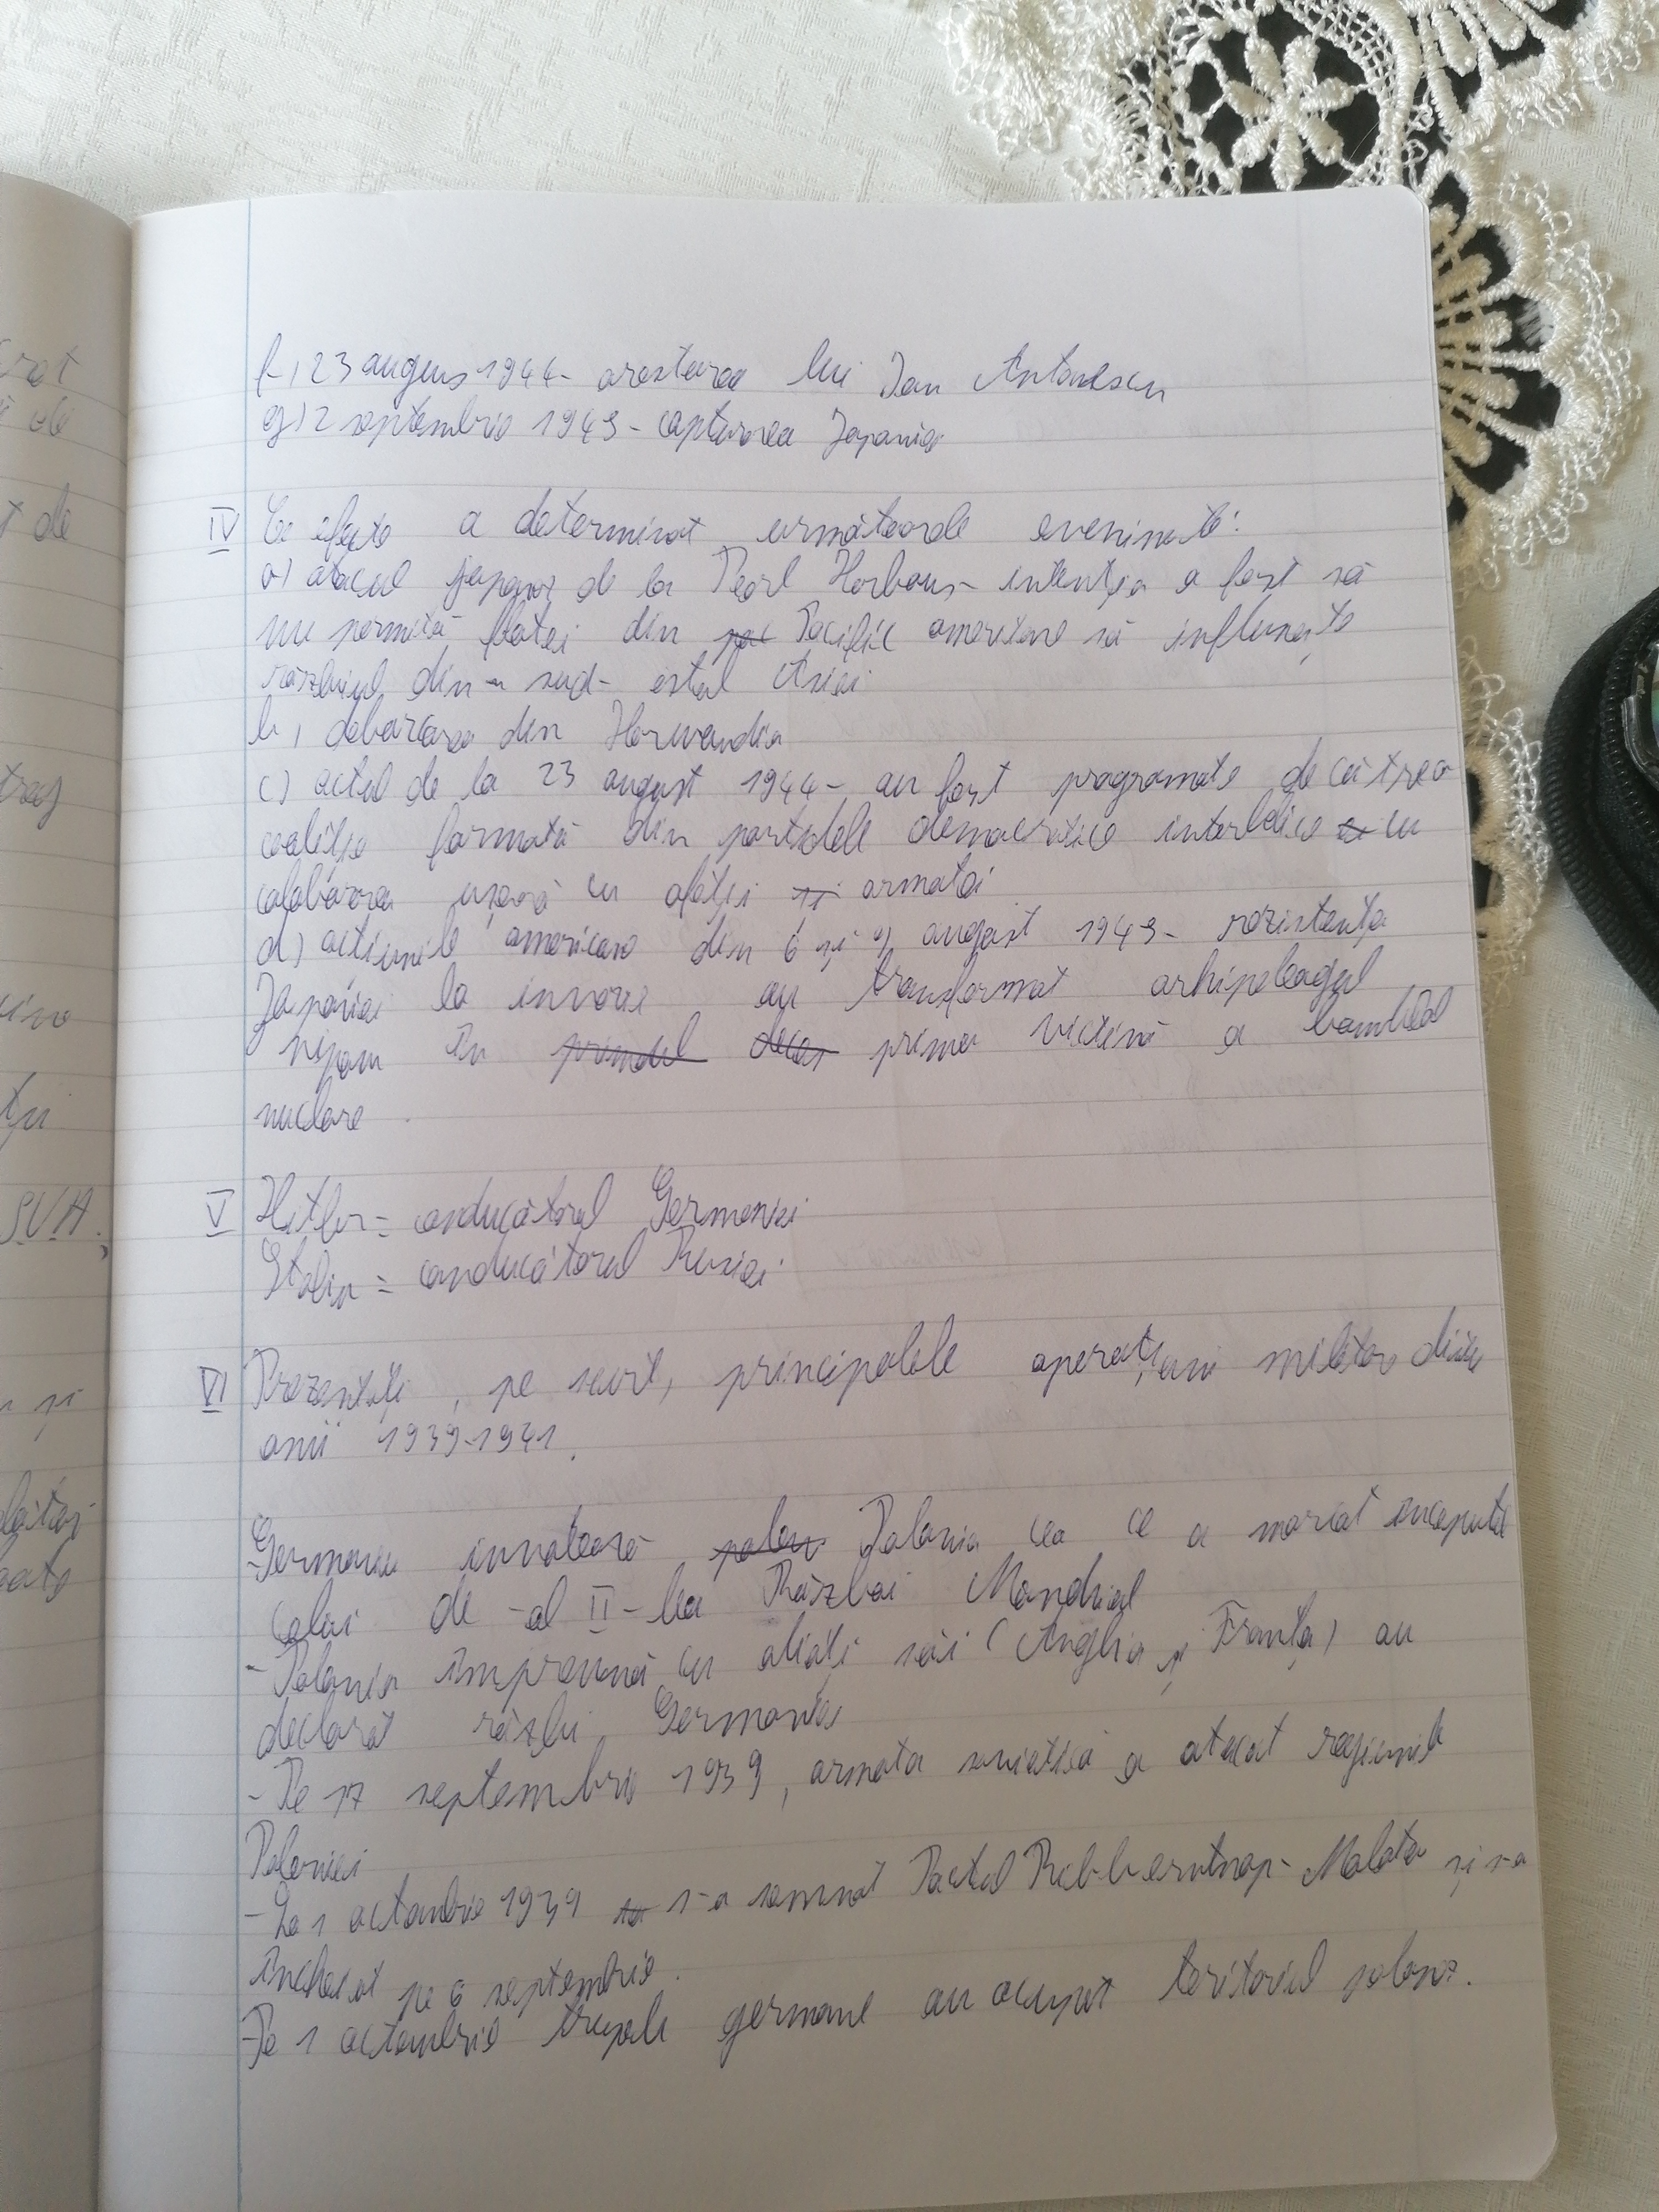 f) 23 augus 1944 - arestarea lui Ion Antonescu
g) 2 septembrie 1945 - capturarea Japoniei
IV Ce efecte a determinat următoarele evenimente:
a) atacul japonez de la Pearl Horbour - intenția a fost să
nu permită flotei din Pacific americane să influențeze
războiul din sud-estul Asiei
b) debarcarea din Normandia
c) actul de la 23 august 1944 - au fost programate de către o
coaliție formată din partidele democratice interbelice cu
armatei
d) acțiunile americane din 6 și 9 august 1945 - rezistența
Japoniei la au transformat arhipeleagul
nipon în prima victimă a bombelor
nucleare
V Hitler = conducătorul Germaniei
Stalin = conducătorul Rusiei
VI Prezentați, pe scurt, principalele operațiuni militare dintre
anii 1939-1941.
-Germania Polonia cea ce a marcat începutul
celui de-al II-lea Război Mondial
- Polonia împreună cu aliați săi (Anglia și Franța) au
declarat Germaniei
- Pe 17 septembrie 1939, armata sovietică a atacat regiunile
Poloniei
- La 1 octombrie 1939 s-a semnat Pactul Ribbberntrop- Molotov și s-a
încheiat pe 6 septembrie.
-Pe 1 octombrie trupele germane au ocupat teritoriul polonez.
ot
de
t de
SUA.